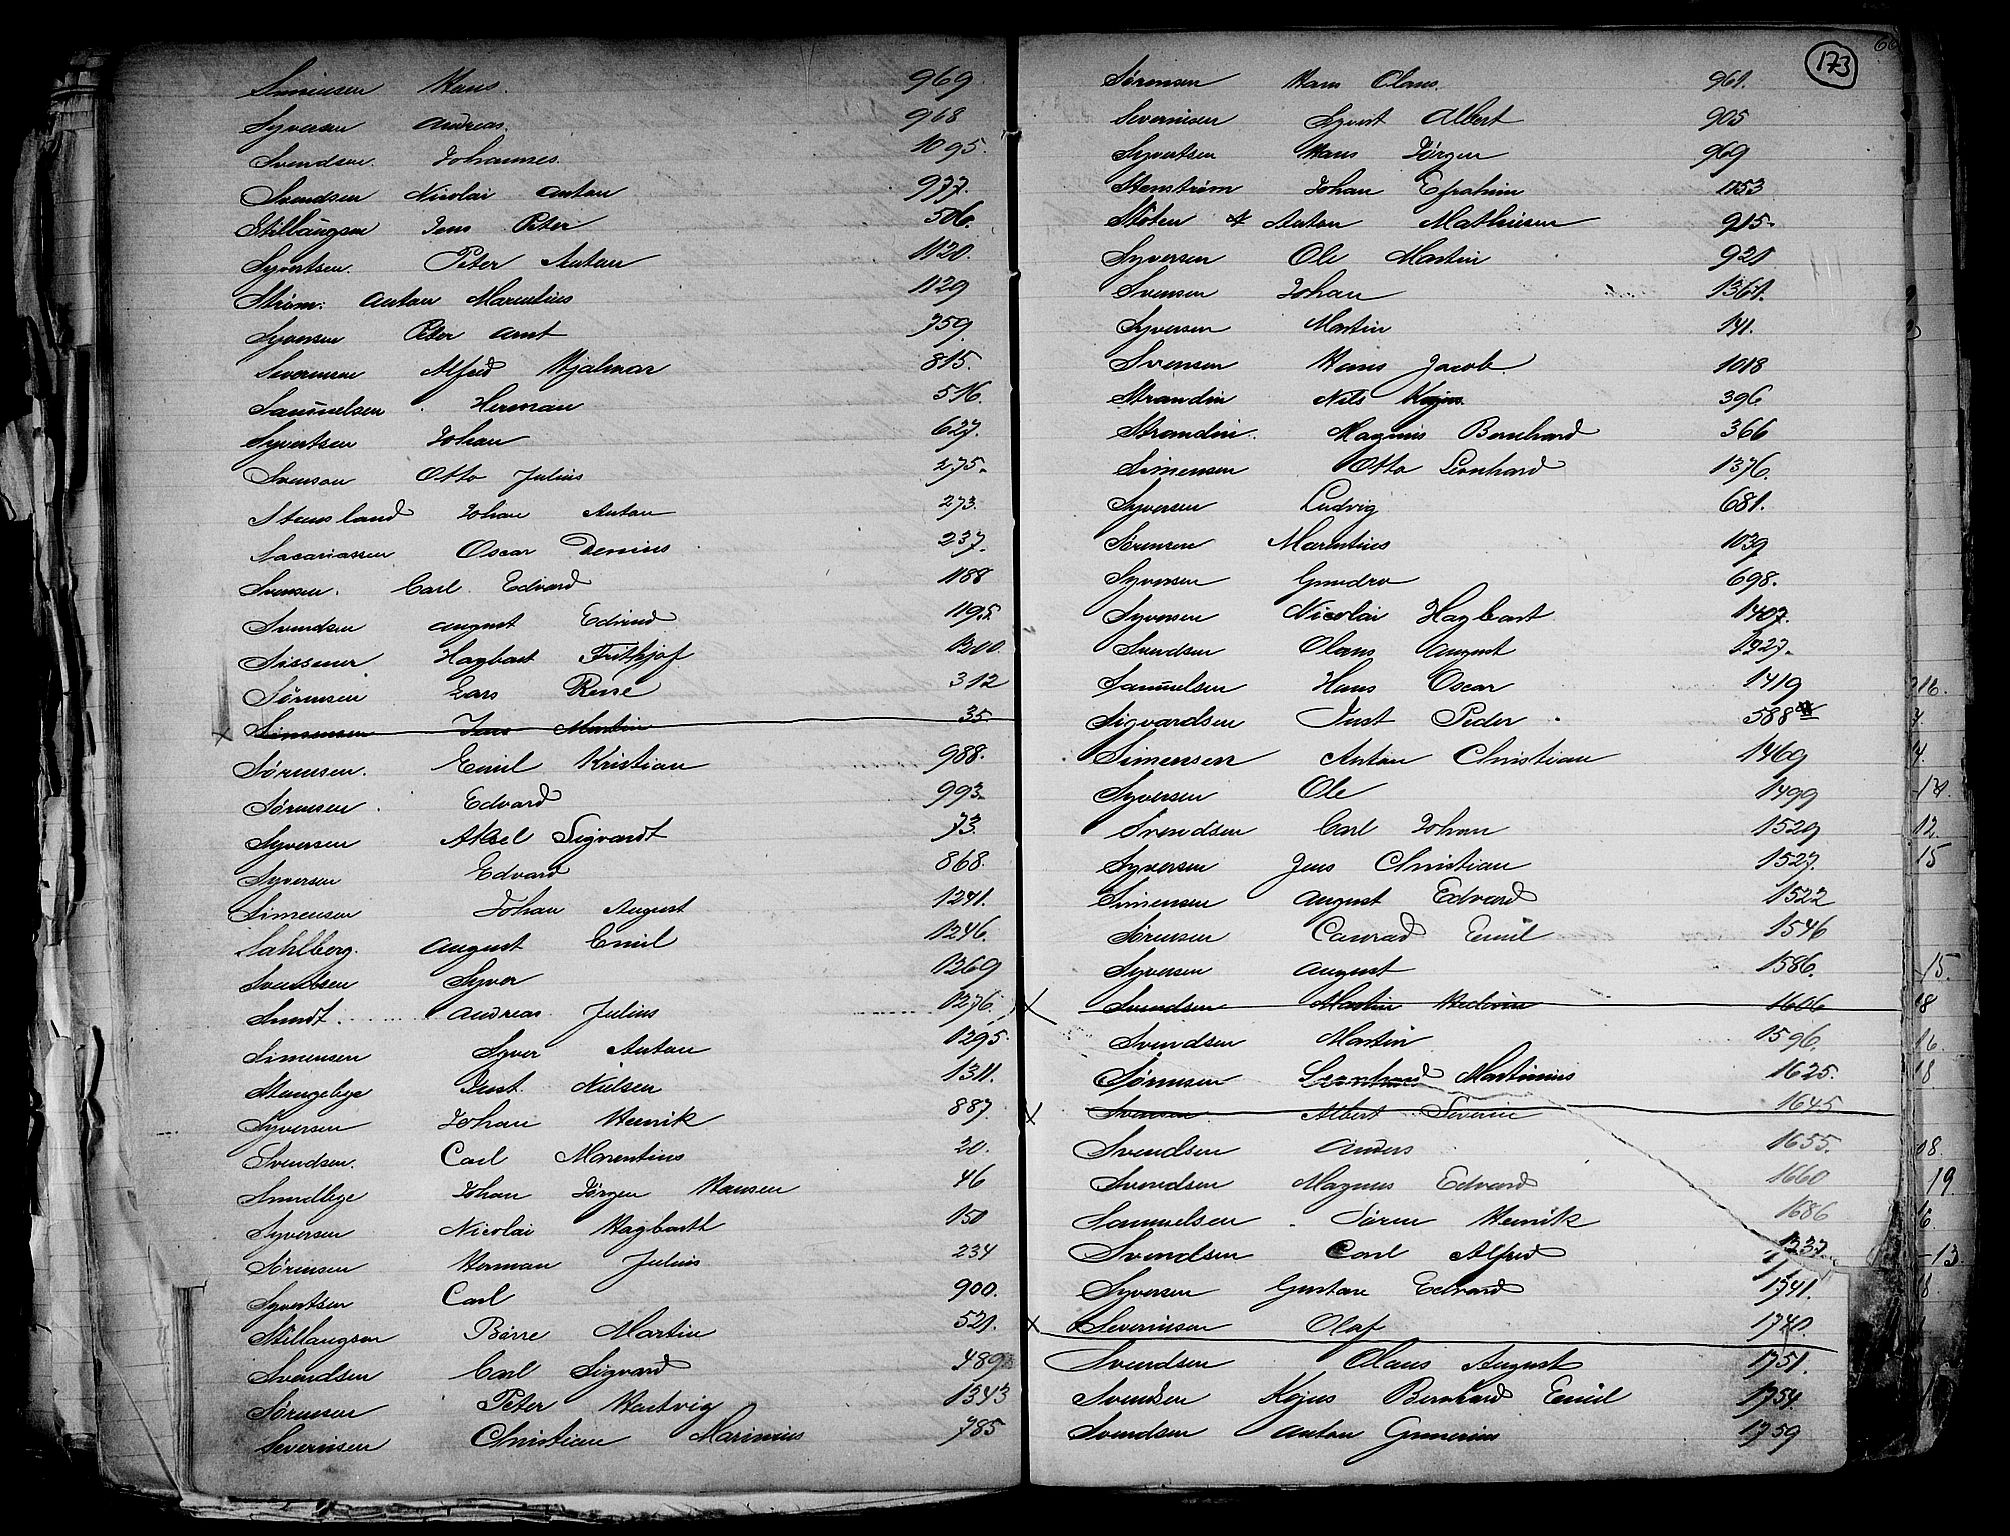 Simensen Hans. 969
Syversen Andreas. 968
Svendsen. Johannes. 1095.
Svendsen Nicolai Anton 977.
Stillaugsen Jens Peter 506.
Syvertsen. Peter Anton 1120.
Strøm. Anton Marentius 1129
Syversen Peter Arnt 759.
Severinsen Alfred Hjalmar 815.
Samuelsen Herman 516.
Syvertsen Johan 627.
Svenson Otto Julius 275.
Stensland Johan Anton 273.
Sacariassen Oscar Denius 237.
Svensen. Carl Edvard 1188
Svendsen August Edvind 1195.
Sissener Hagbart Frithjof 1200
Sørensen Lars Rene 312
Simensen Jens Martin 35.
Sørensen. Emil Kristian 988.
Sørensen. Edvard 993.
Syversen Aksel Sigvardt 73.
Syversen Edvard 868.
Simensen Johan August 1241.
Sahlberg. August Emil 1246.
Svendsen Syver 1269
Sundt. Andreas Julius 1276.
Simensen Syver Anton 1295.
Stangebye Just Nielsen 1311.
Syversen Johan Henrik 887.
Svendsen. Carl Marentius 20.
Sundbye Johan Jørgen Hansen 46
Syversen Nicolai Hagbarth 150
Sørensen Herman Julius 234
Syvertsen Carl 900.
Stillaugsen Børre Martin 521.
Svendsen Carl Sigvard 489
Sørensen Peter Hartvig 1343
Severinsen Christian Marinius 785
173
Sørensen Hans Olaus. 961.
Severinsen Syvert Albert 905
Syvertsen Hans Jørgen 969
Stenstrøm Johan Efrahim 1153
Støten Anton Mathisen 915.
Syversen Ole Martin 921
Svensen Johan 1361.
Syversen Martin 141.
Svensen Hans Jacob. 1018
Strandin Nils Kajus 396
Strandin. Magnus Bernhard 366
Simensen Otto Leonhard 1376.
Syversen Ludvig 681.
Sørensen Marentius 1039
Syversen Gundro 698.
Syversen Nicolai Hagbart 1407.
Svendsen Olaus August 1327.
Samuelsen Hans Oscar 1419
Sigvardsen Just Peder 588
Simensen Anton Christian 1469
Syversen Ole 1499
Svendsen Carl Johan 1529
Syversen Jens Christian 1527.
Simensen August Edvard 1522
Sørensen Conrad Emil 1546
Syversen August 1586.
Svendsen Martin 1606
Svendsen Martin 1596.
Sørensen Leonhard Martinius 1625.
Svensen Albert Severin 1645
Svendsen Anders 1655.
Svendsen Magnus Edvard 1660
Samuelsen Søren Henrik 1686
Svendsen Carl Alfred 1737.
Syversen Gustav Edvard 1741.
Severinsen Olaf 1740.
Svendsen Olaus August 1751.
Svendsen Kajus Bernhard Emil 1754.
Svendsen Anton Gunerius 1759